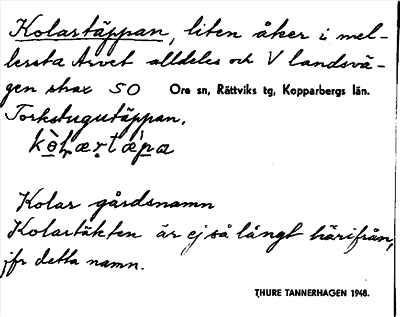 Kolartäppan, liten åker i mel-
lersta Arvet alldeles och V landsvä-
gen strax SO Ore sn, Rättviks tg, Kopparbergs län.
Torkstugutäppan.
Kolar gårdsnamn
Kolartäkten är ej så långt härifrån,
jfr detta namn.
THURE TANNERHAGEN 1948.